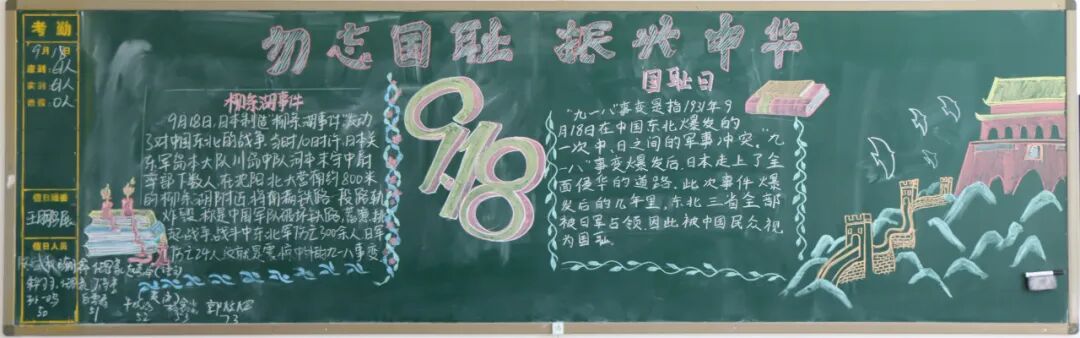 勿忘国耻 振兴中华
考勤
9月18日
应到:61人
实到:61人
请假:0人
值日班委
值日人员
柳条湖事件
9月18日,日本制造柳条湖事件,发动
了对中国东北的战争,当时10时许,日本关
东军岛本大队川岛中队河本末守中尉
率部下数人,在沈阳北大营南约800米
的柳条湖附近,将南满铁路一段路轨
炸毁,称是中国军队破坏铁路,蓄意挑
起战争,战斗中东北军伤亡300余人,日军
伤亡24人,这就是震惊中外的九一八事变
9.18
国耻日
"九一八"事变是指1931年9
月18日在中国东北爆发的
一次中、日之间的军事冲突。"九
一八"事变爆发后,日本走上了全
面侵华的道路。此次事件爆
发后的几年里,东北三省全部
被日军占领,因此被中国民众视
为国耻。
50
51
52
53
73